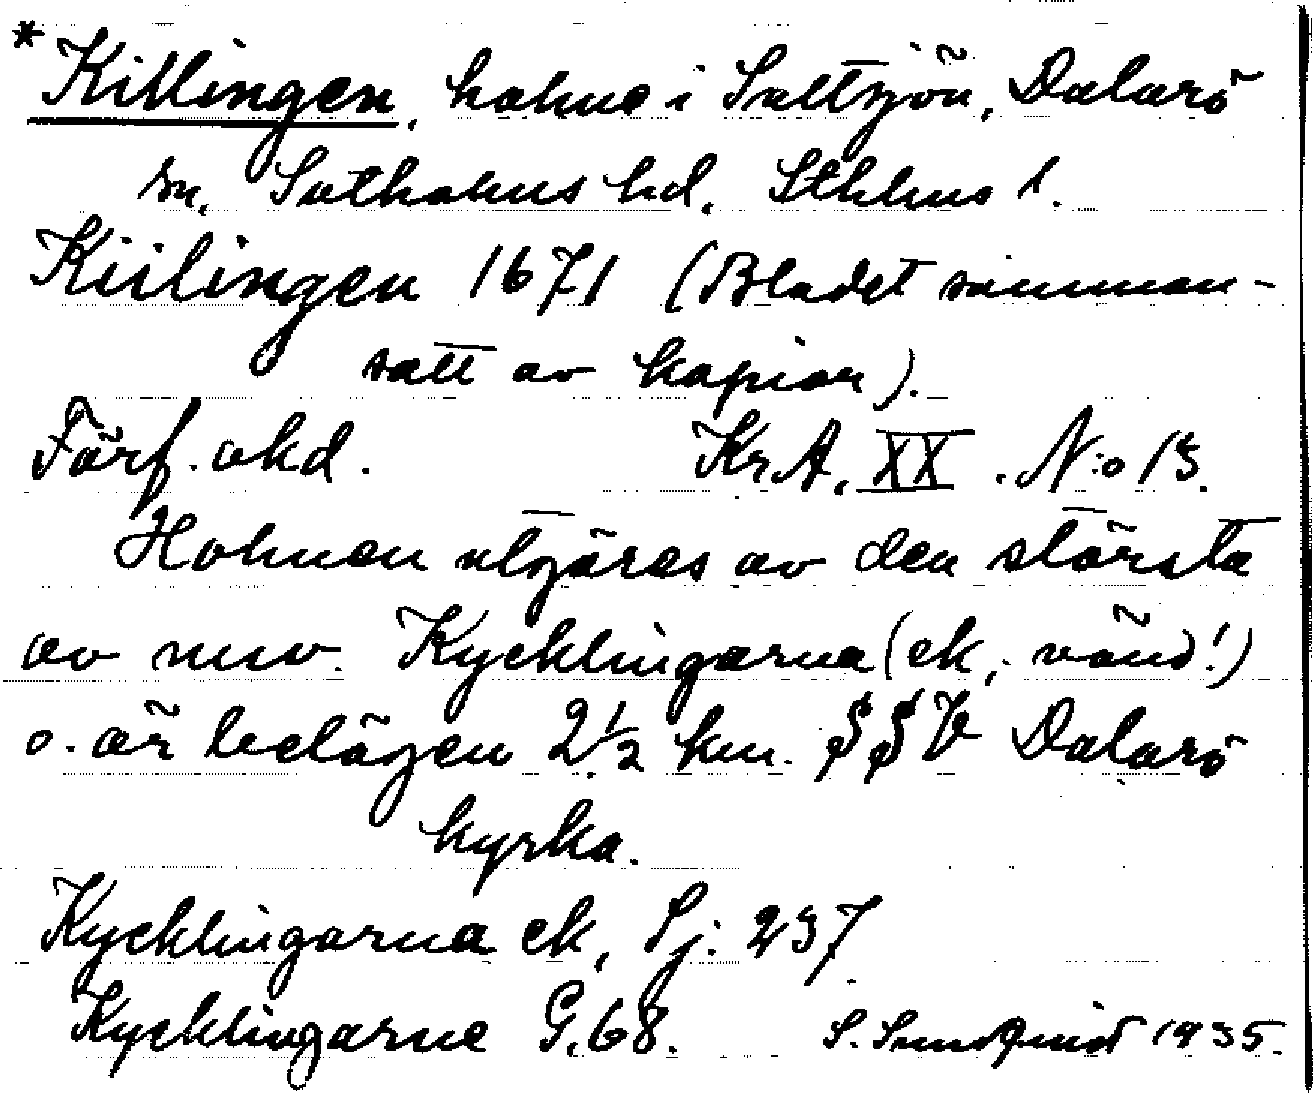 *Killingen, holme i Saltsjön, Dalarö
sn, Sotholms hd, Sthlms l.
Kiilingen 1671 (Bladet samman-
satt av kopior).
Förf. okd. KrA, XX. N:o 13.
Holmen utgöres av den största
av nuv. Kycklingarna (ek, vänd!)
o. är belägen 2 1/2 km. SSV Dalarö
kyrka.
Kycklingarna ek, Sj: 237
Kycklingarne G.68. S. Sundqvist 1935.